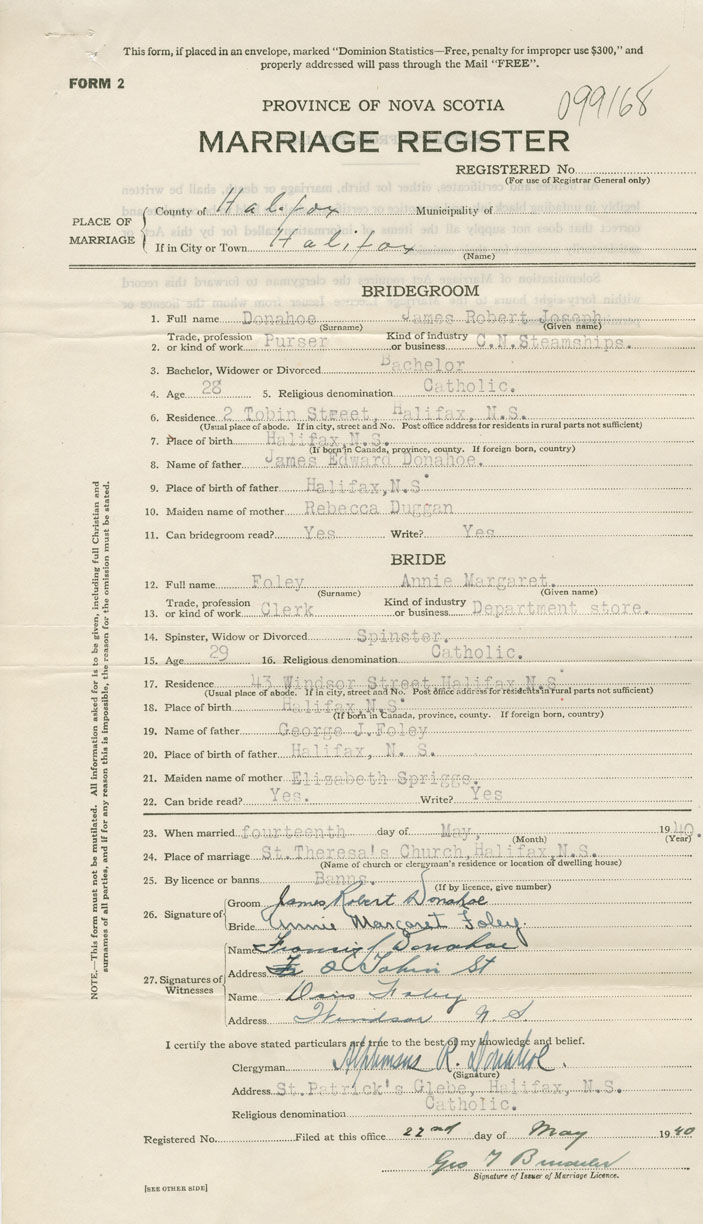 This form, if placed in an envelope, marked "Dominion Statistics—Free, penalty for improper use $300," and
properly addressed will pass through the Mail "FREE".
FORM 2
099168
PROVINCE OF NOVA SCOTIA
MARRIAGE REGISTER
REGISTERED No.
(For use of Registrar General only)
PLACE OF MARRIAGE
County of Halifax Municipality of
If in City or Town Halifax
(Name)
BRIDEGROOM
1. Full name Donahoe James Robert Joseph
(Surname) (Given name)
2. Trade, profession or kind of work Purser Kind of industry or business C.N.Steamships.
3. Bachelor, Widower or Divorced Bachelor
4. Age 28 5. Religious denomination Catholic.
6. Residence 2 Tobin Street, Halifax, N.S.
(Usual place of abode. If in city, street and No. Post office address for residents in rural parts not sufficient)
7. Place of birth Halifax,N.S.
(If born in Canada, province, county. If foreign born, country)
8. Name of father James Edward Donahoe.
9. Place of birth of father Halifax,N.S.
10. Maiden name of mother Rebecca Duggan
11. Can bridegroom read? Yes Write? Yes
BRIDE
12. Full name Foley Annie Margaret.
(Surname) (Given name)
13. Trade, profession or kind of work Clerk Kind of industry or business Department store.
14. Spinster, Widow or Divorced Spinster.
15. Age 29 16. Religious denomination Catholic.
17. Residence 43 Windsor Street,Halifax,N.S.
(Usual place of abode. If in city, street and No. Post office address for residents in rural parts not sufficient)
18. Place of birth Halifax,N.S.
(If born in Canada, province, county. If foreign born, country)
19. Name of father George J.Foley
20. Place of birth of father Halifax, N. S.
21. Maiden name of mother Elizabeth Spriggs.
22. Can bride read? Yes. Write? Yes
23. When married fourteenth day of May, 1940.
(Month) (Year)
24. Place of marriage St.Theresa's Church,Halifax,N.S.
(Name of church or clergyman's residence or location of dwelling house)
25. By licence or banns Banns.
(If by licence, give number)
26. Signature of
Groom James Robert Donahoe
Bride Annie Margaret Foley.
27. Signatures of Witnesses
Name Francis J Donahoe
Address 2 Tobin St
Name Doris Foley
Address Windsor N S
I certify the above stated particulars are true to the best of my knowledge and belief.
Clergyman Alphonsus R. Donahoe.
(Signature)
Address St.Patrick's Glebe, Halifax, N.S.
Religious denomination Catholic.
Registered No. Filed at this office 22nd day of May 1940
Geo
Signature of Issuer of Marriage Licence.
[SEE OTHER SIDE]
NOTE.—This form must not be mutilated. All information asked for is to be given, including full Christian and
surnames of all parties, and if for any reason this is impossible, the reason for the omission must be stated.